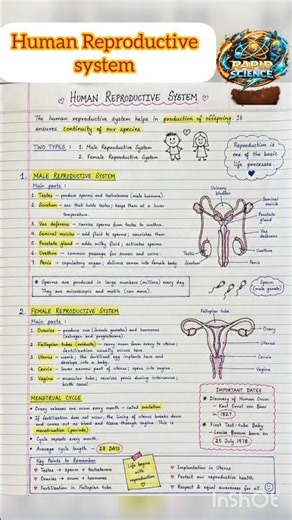 Human Reproductive
system
RAPID
SCIENCE
HUMAN REPRODUCTIVE SYSTEM
The human reproductive system helps in production of offspring. It
ensures continuity of our species.
TWO TYPES : 1. Male Reproductive System
2. Female Reproductive System
Reproduction is
one of the basic
life processes.
1. MALE REPRODUCTIVE SYSTEM
Main parts :
1. Testes – produce sperms and testosterone (male hormone).
2. Scrotum – sac that holds testes; keeps them at a lower
temperature.
3. Vas deferens – carries sperms from testes to urethra.
4. Seminal vesicle – add fluid to sperms; nourishes them.
5. Prostate gland – adds milky fluid; activates sperms.
6. Urethra – common passage for semen and urine.
7. Penis – copulatory organ; delivers semen into female body.
Urinary
bladder
Seminal
vesicle
Prostate
gland
Vas
deferens
Urethra
Testis
Scrotum
Penis
Sperms are produced in large numbers (millions) every day.
They are microscopic and motile (can move).
Sperm
(male gamete)
2. FEMALE REPRODUCTIVE SYSTEM
Main parts :
1. Ovaries – produce ova (female gametes) and hormones
(estrogen and progesterone).
2. Fallopian tubes (oviducts) – carry ovum from ovary to uterus;
fertilisation usually occurs here.
3. Uterus – womb; the fertilised egg implants here and
develops into a baby.
4. Cervix – lower narrow part of uterus; opens into vagina.
5. Vagina – muscular tube; receives penis during intercourse;
birth canal.
Fallopian tube
Ovary
Uterus
Cervix
Vagina
MENSTRUAL CYCLE
Ovary releases one ovum every month – called ovulation.
If fertilisation does not occur, the lining of uterus breaks down
and comes out as blood and tissue through vagina. This is
menstruation (periods).
Cycle repeats every month.
Average cycle length – 28 DAYS
IMPORTANT DATES
Discovery of Human Ovum
– Karl Ernst von Baer
in 1827.
First Test-tube Baby
– Louise Brown born on
25 July 1978.
Key Points to Remember
Testes → sperm + testosterone
Ovaries → ovum + hormones
Fertilisation in Fallopian tube
Life begins
with
reproduction
Implantation in Uterus
Protect our reproductive health.
Respect & equal awareness for all.
InShot